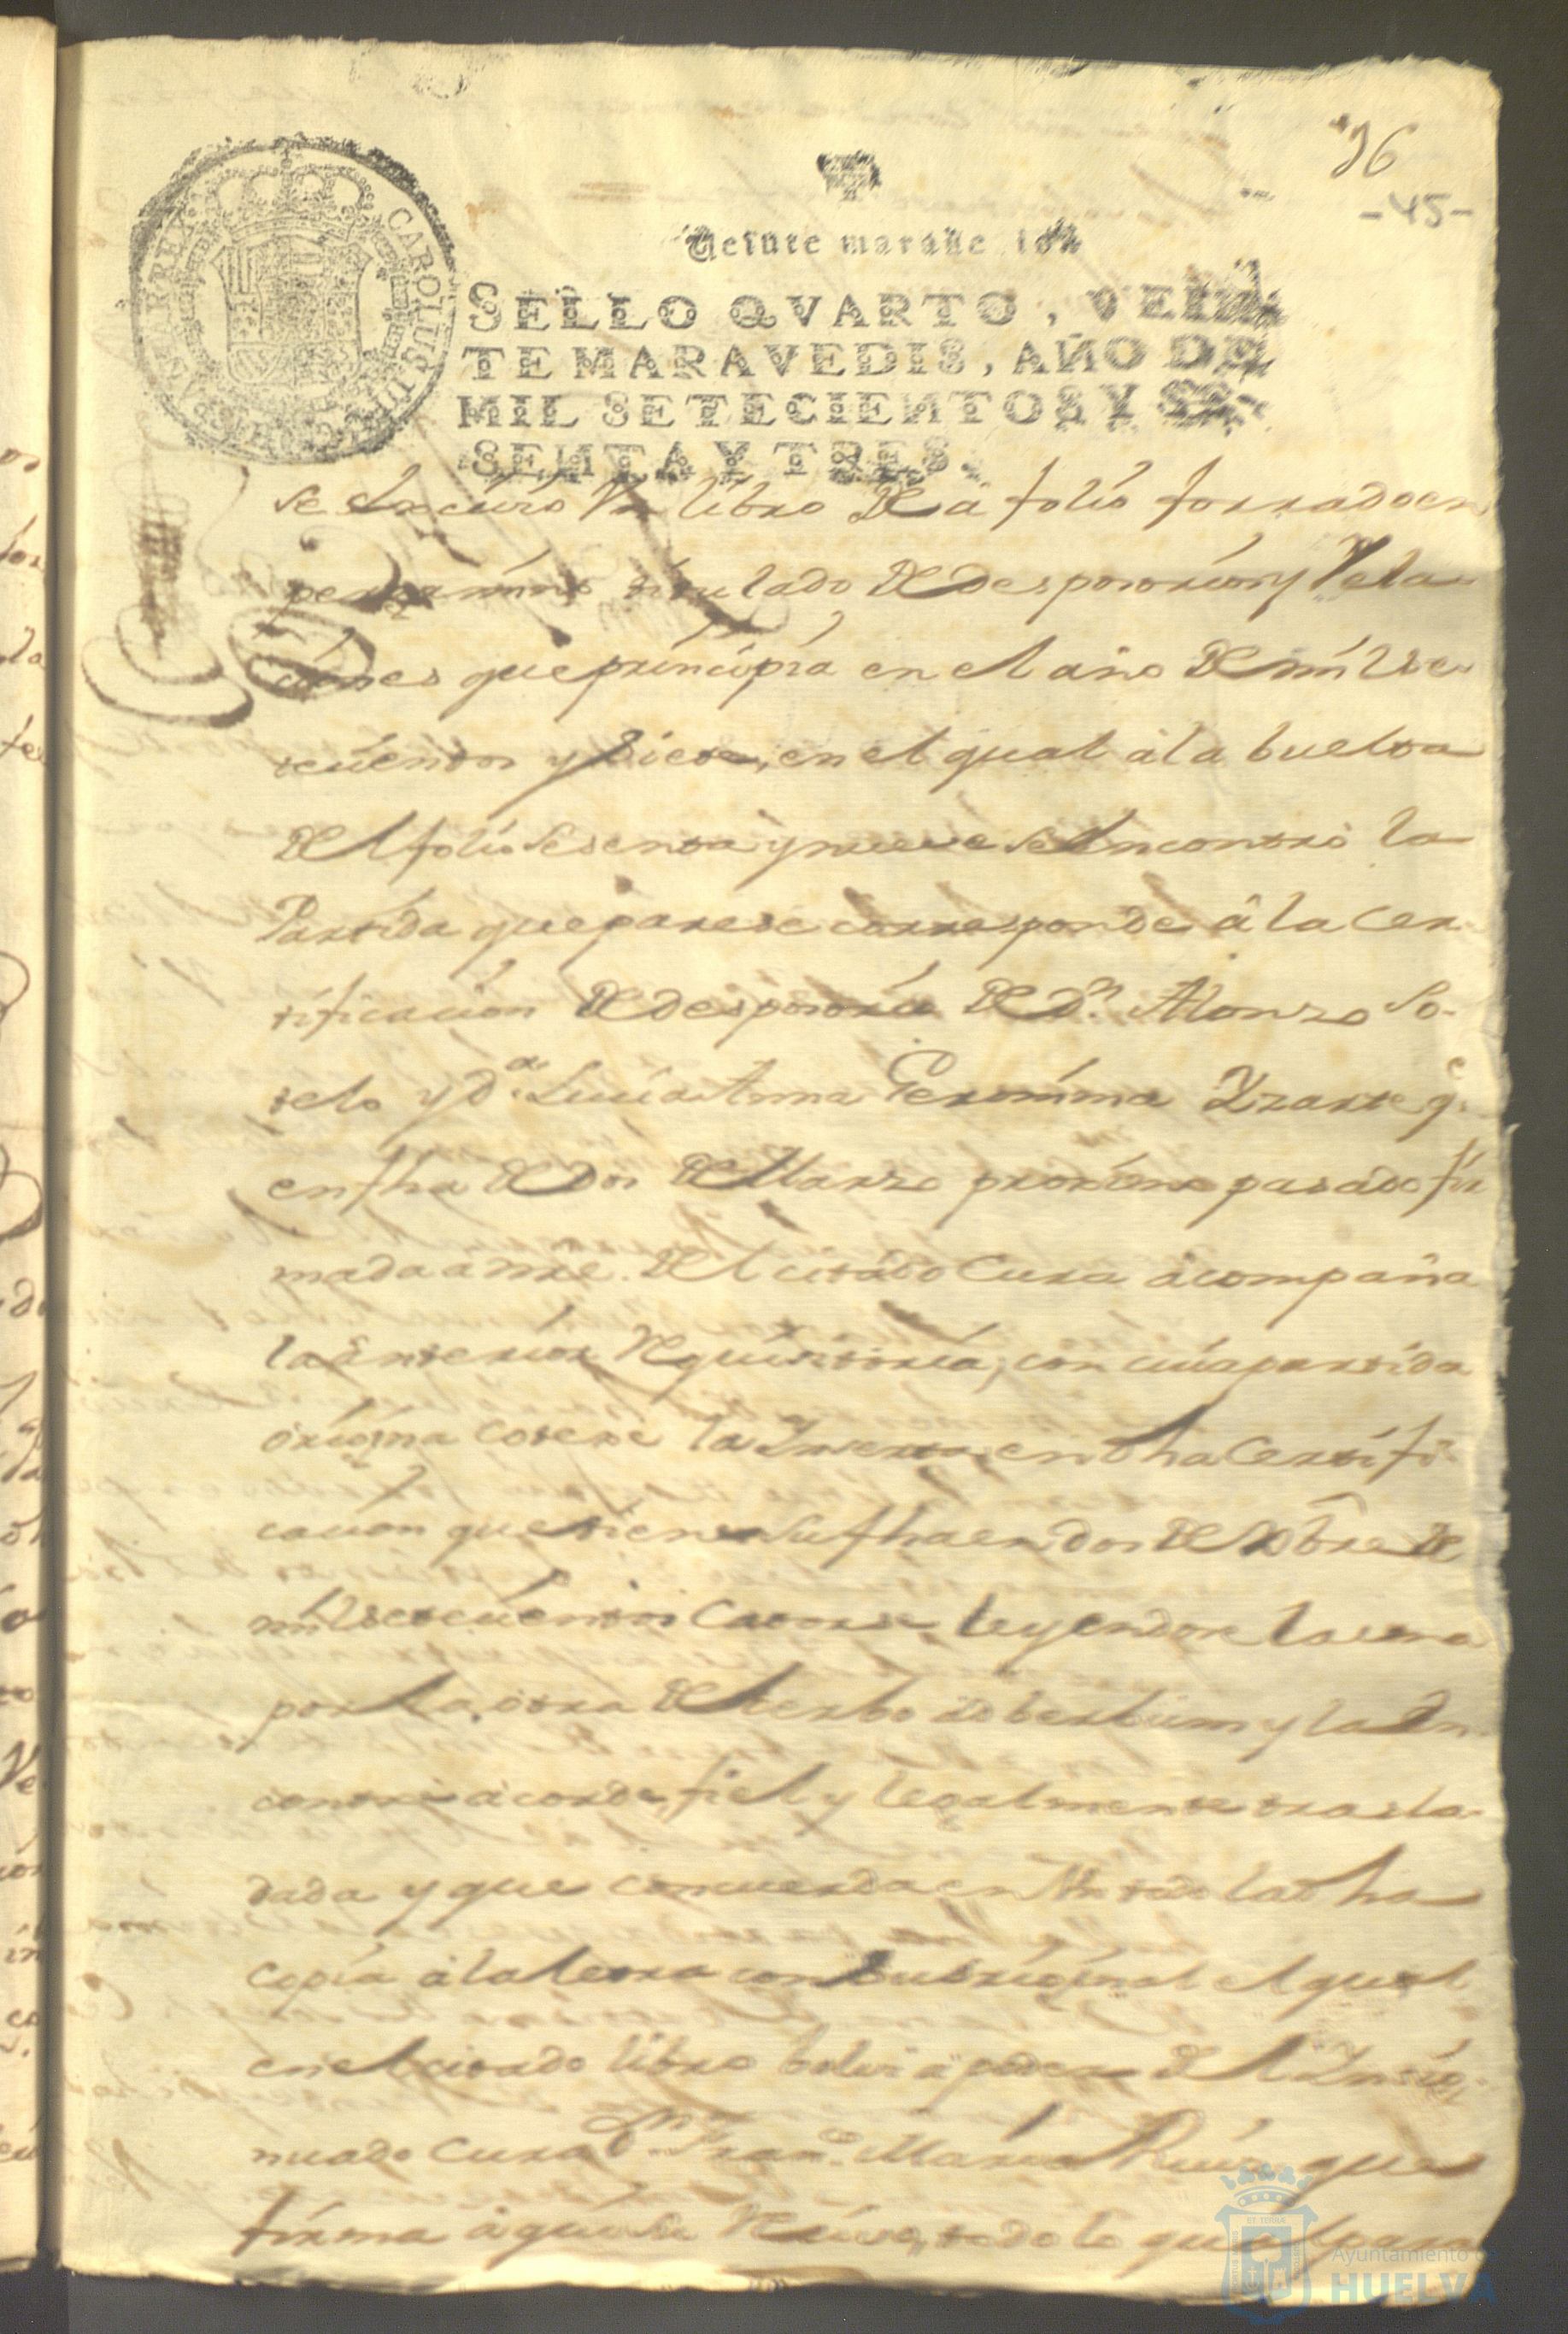 96
-45-
Veinte maravedis
SELLO QVARTO, VEIN
TE MARAVEDIS, AÑO DE
MIL SETECIENTOS Y SE
SENTA Y TRES.
CAROLUS III
se Un libro de a folio forrado en
pergamino titulado de desposorios y Vela
ciones que principia en el año de mil se
tecientos y siete, en el qual à la buelta
del folio sesenta y nueve se encontró la
Partida que parese corresponde â la Cer
tificacion de desposorio de dn. Alonzo So-
telo y da. Lucia Anna Geronima Yzarte qe.
en fha de dos de Marzo proximo pasado fir
mada a nre. del citado Cura acompaña
la Anterior Requisitoria, con cuia partida
origina coteje la Inserta en dha Certifi
cacion que tiene su fha en dos de de
mil setecientos Catorse leyendose la una
por la otra de berbo ad berbum y la en
contre acorde, fiel y legalmente trasla-
dada y que concuerda en todo la dha
copia a la letra con su original el qual
en el citado libro bolvi a poder del Insi
nuado Cura dn. Franco. Maria Ruiz que
firma aqui su Resivo, todo lo qual
Ayuntamiento de
HUELVA